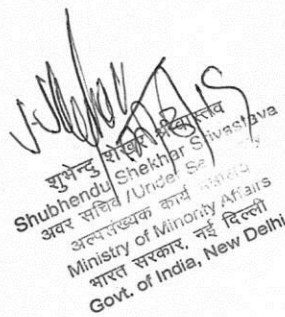 शुभेन्दु शेखर श्रीवास्तव
Shubhendu Shekhar Srivastava
अवर सचिव /Under
अल्पसंख्यक कार्य
Ministry of Minority Affairs
भारत सरकार, नई दिल्ली
Govt. of India, New Delhi